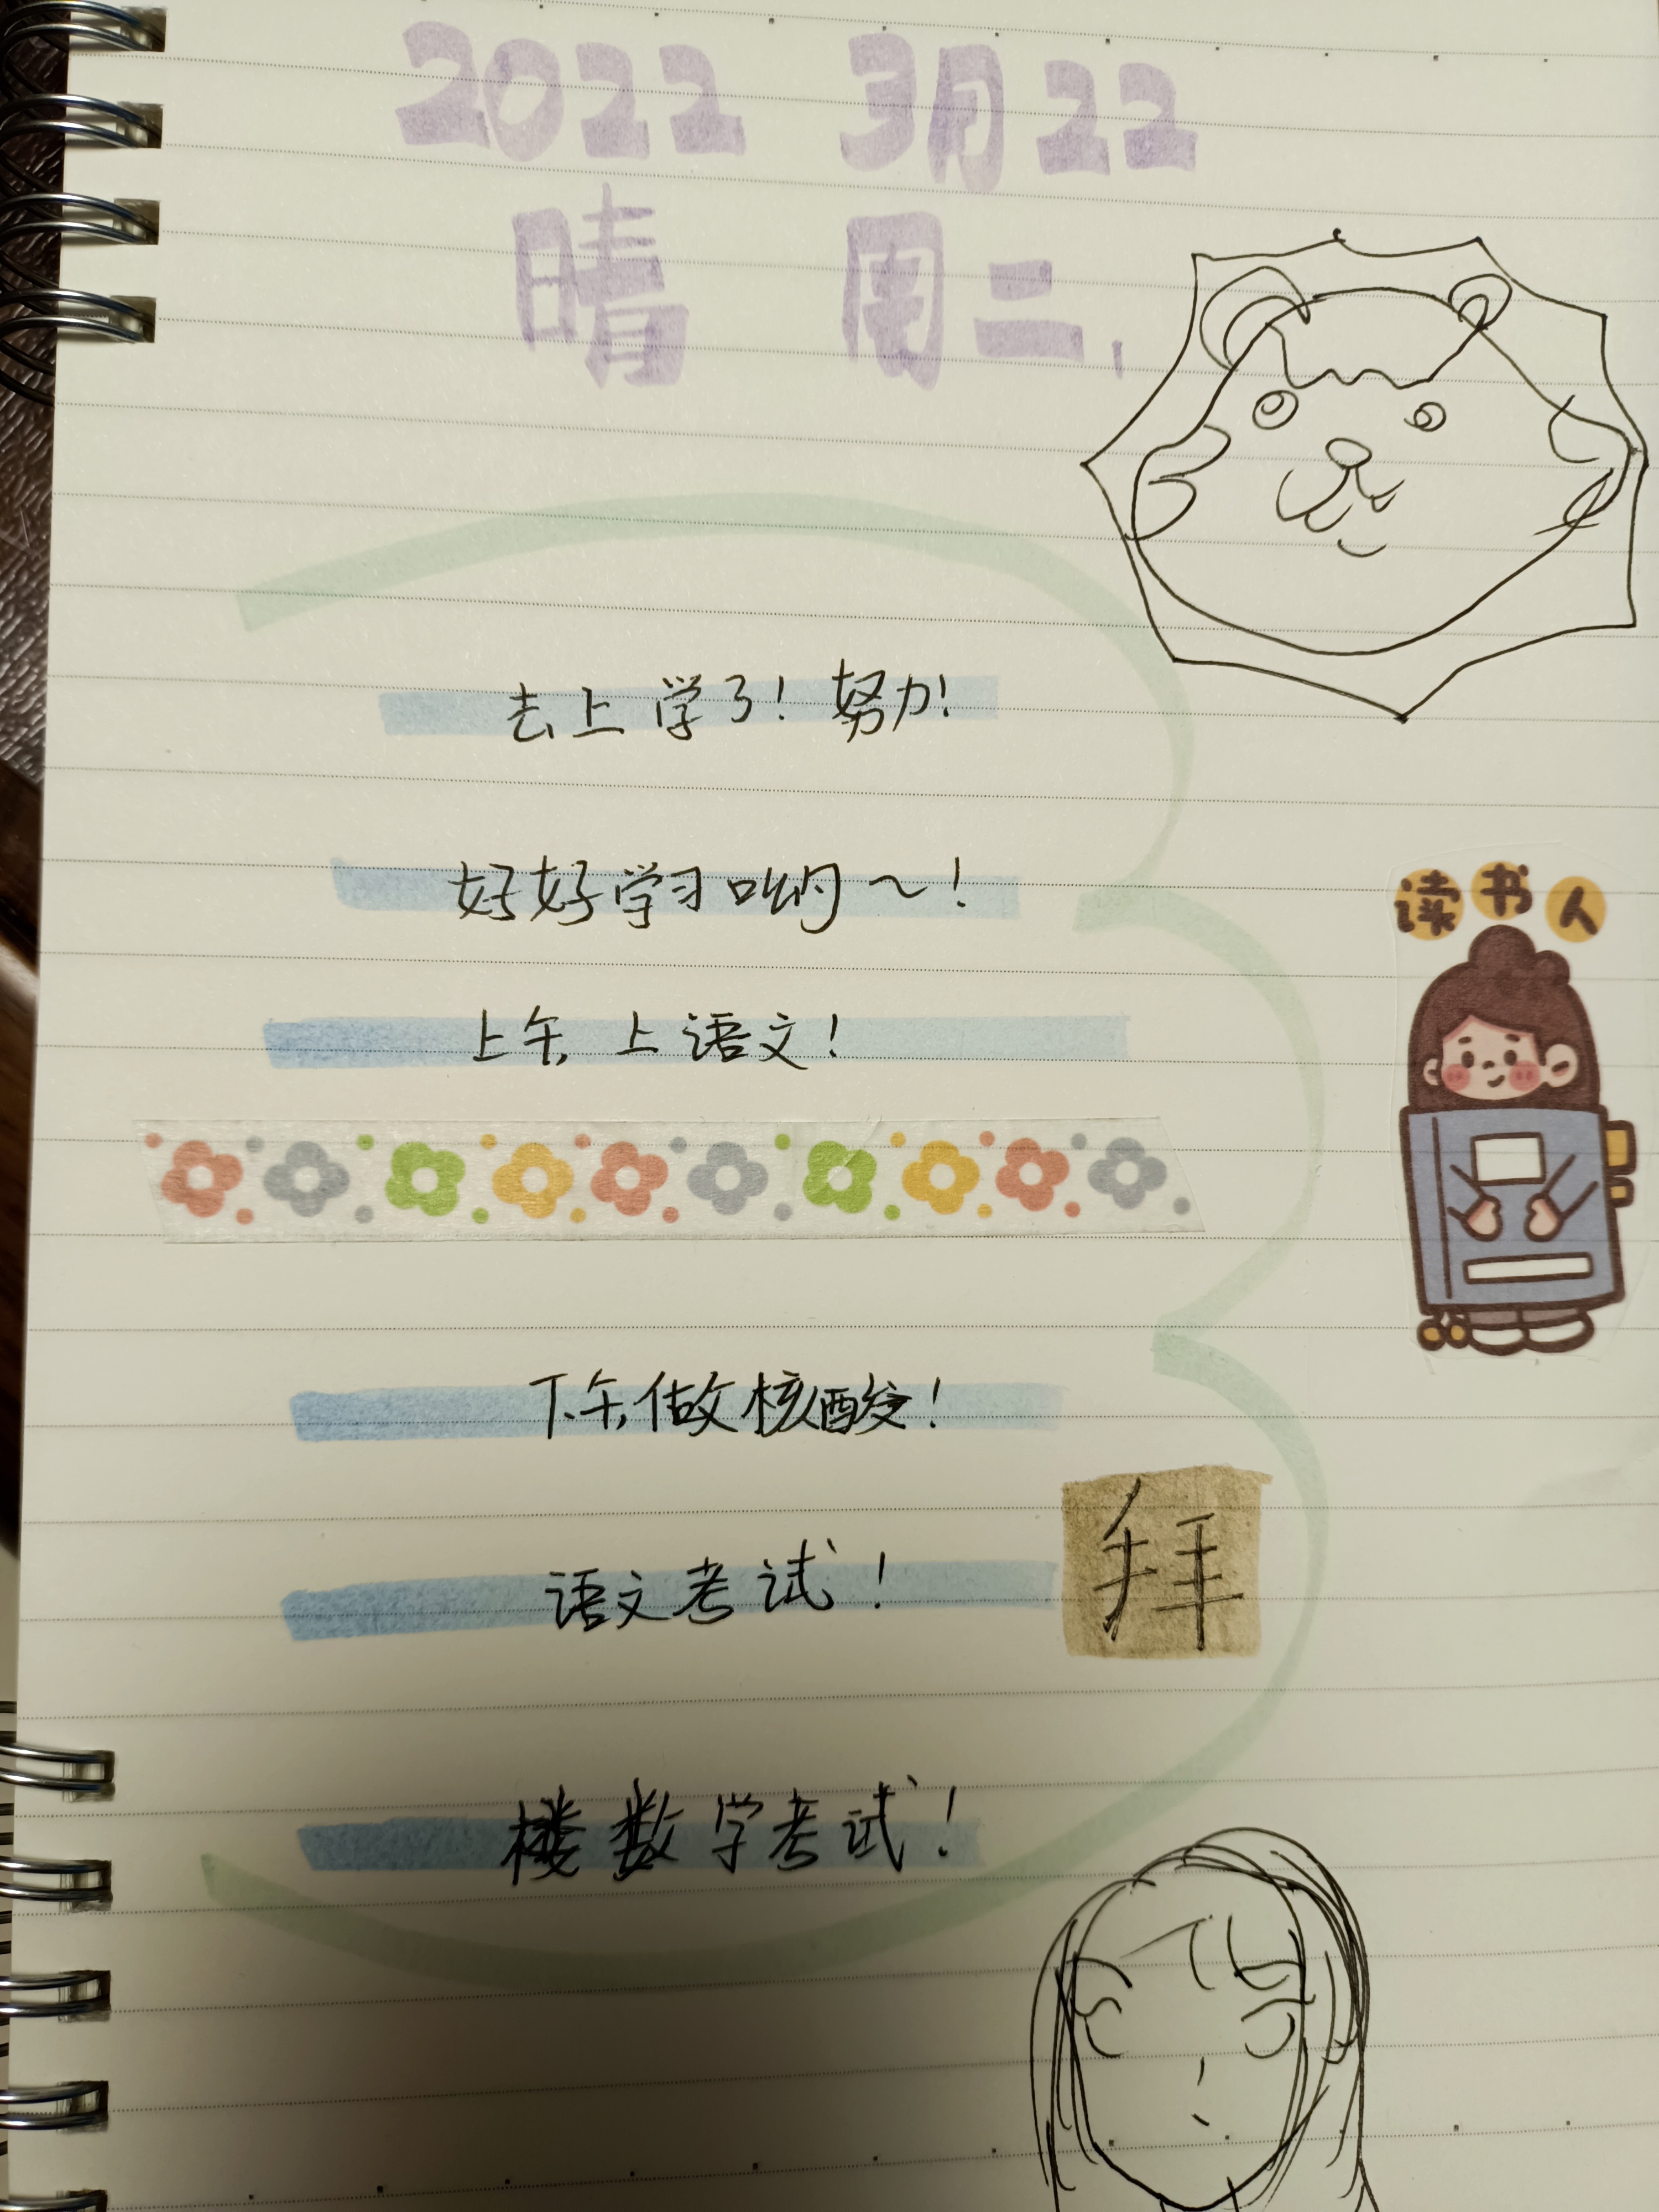 2022 3月22
晴 周二、
去上学了！努力！
好好学习哟～！
读书人
上午上语文！
下午做核酸！
语文考试！
拜
数学考试！